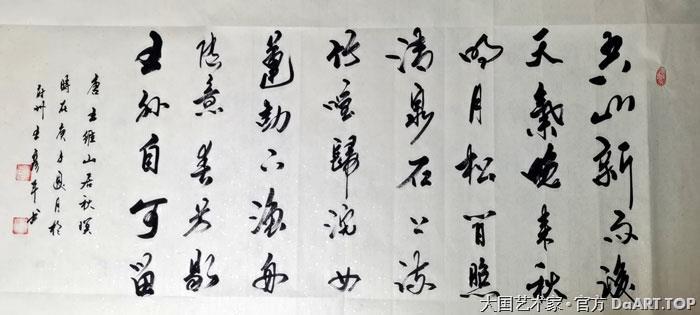 空山新雨後
天氣晚来秋
明月松间照
清泉石上流
竹喧歸浣女
蓮動下渔舟
随意春芳歇
王孙自可留
唐王維山居秋暝
時在庚子
月於
书
大国艺术家·官方 DaART.TOP